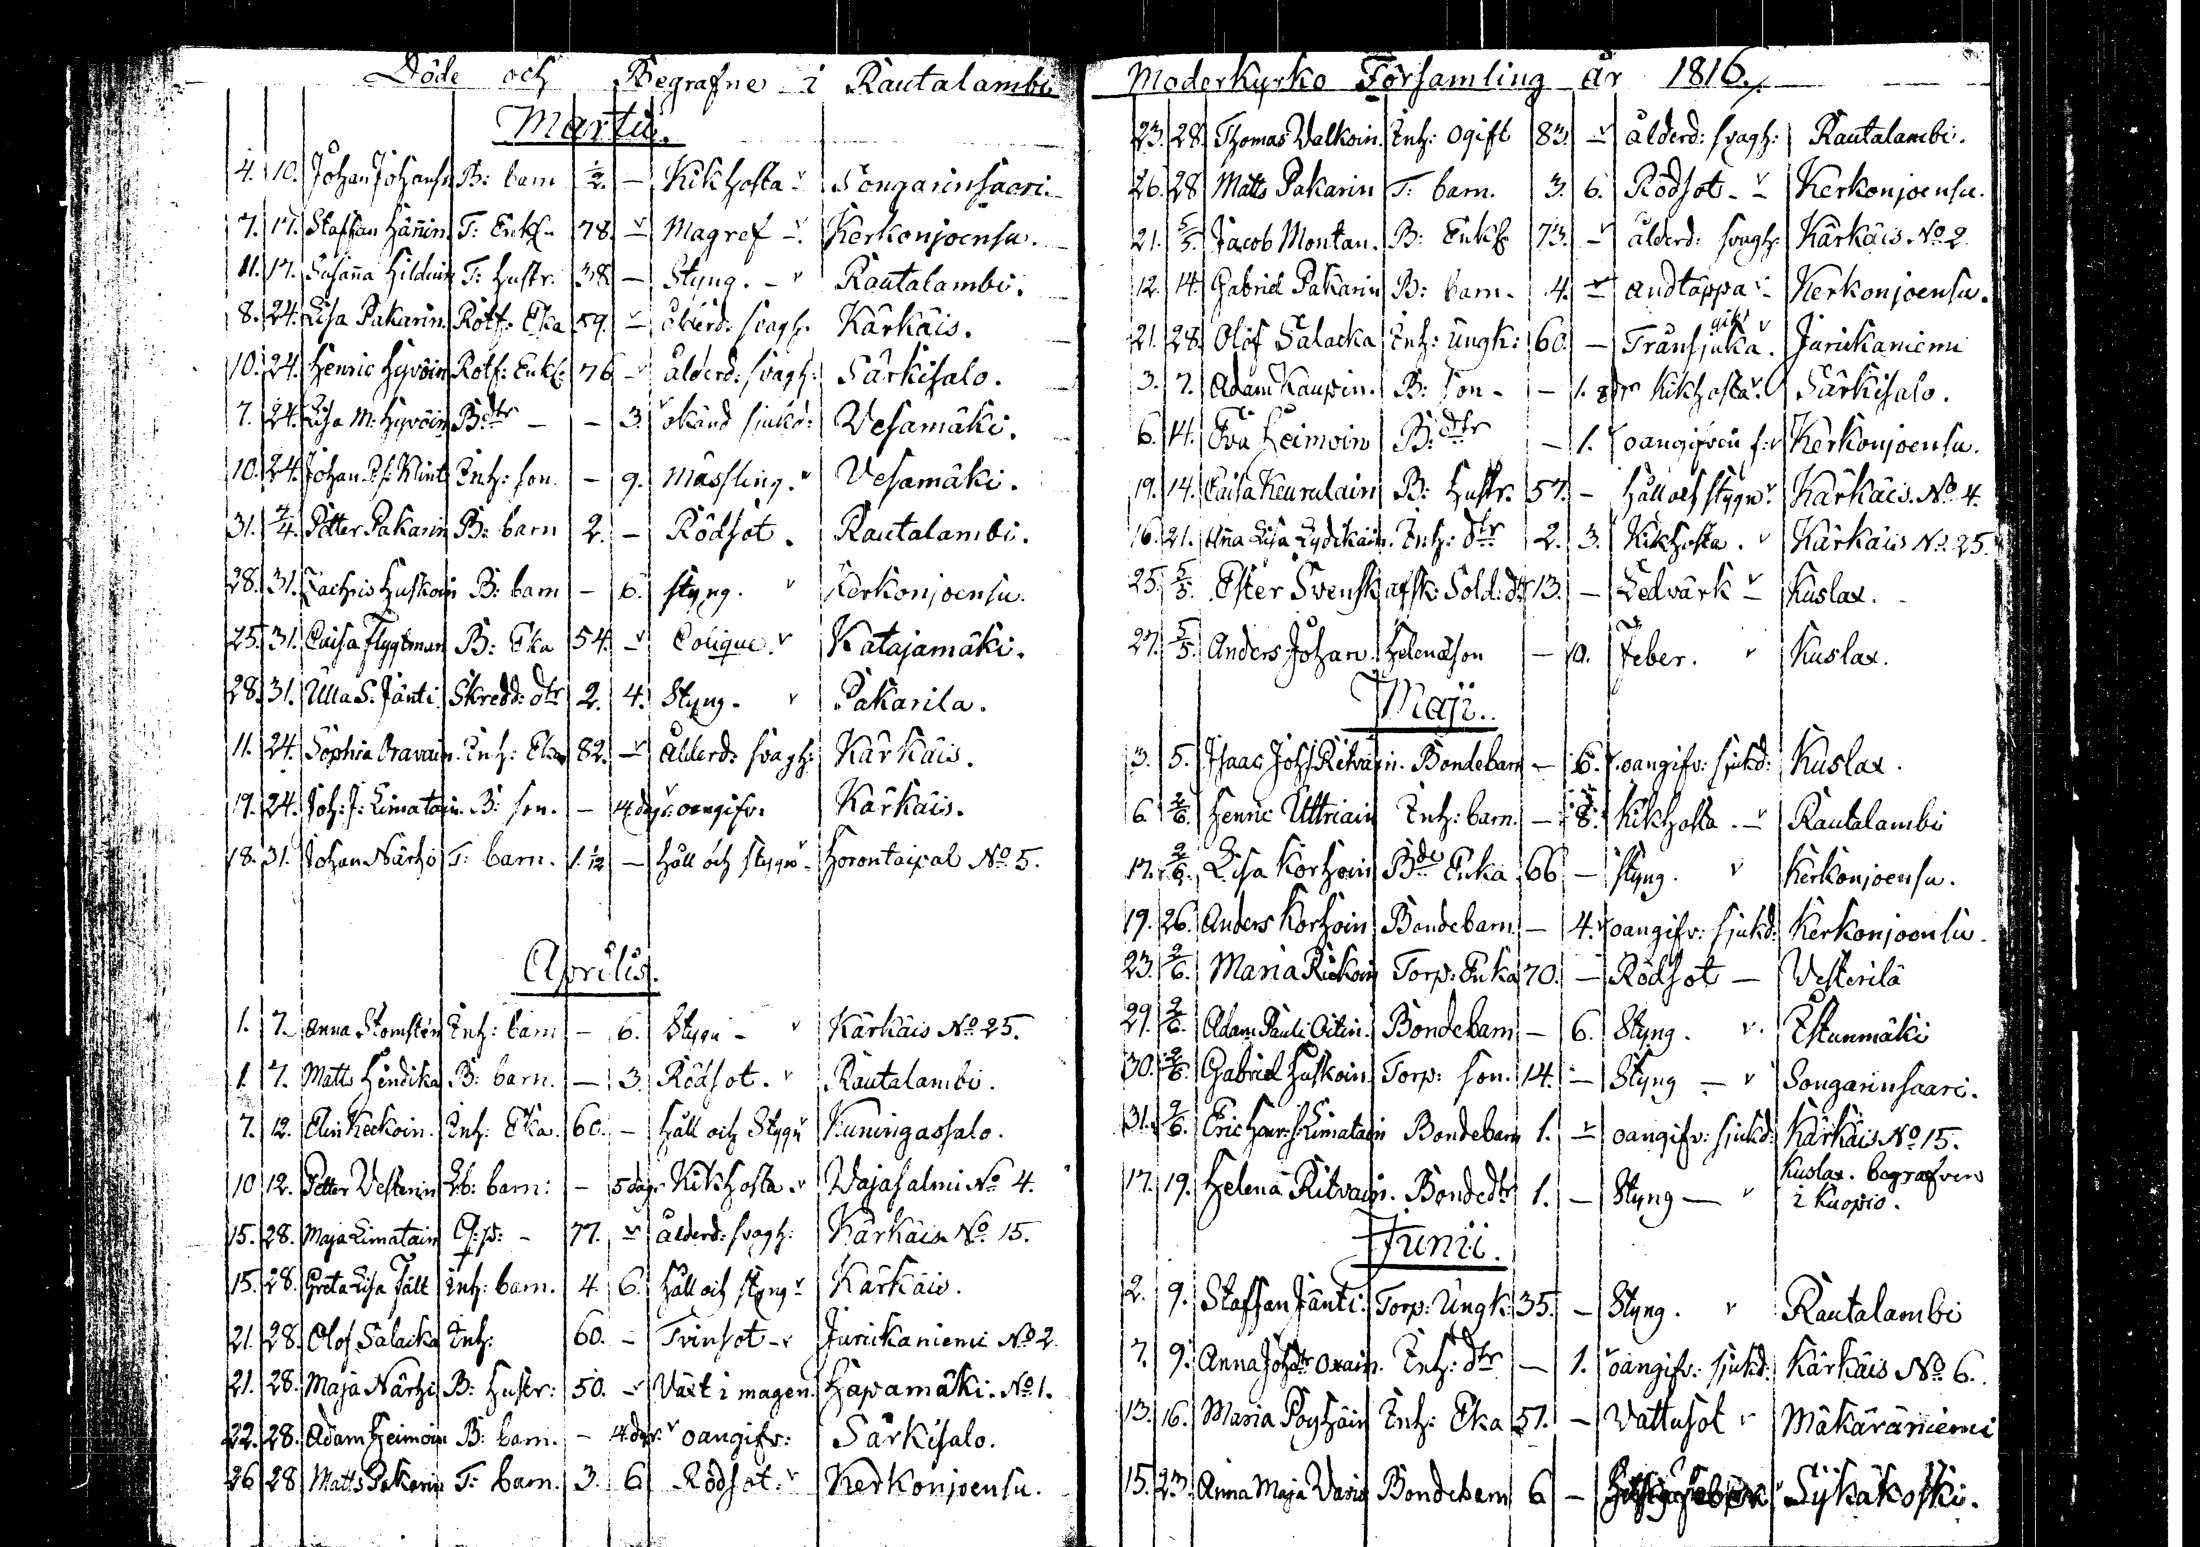 Döde och Begrafne i Rautalambi
Martii.
4. 10. Johan Johanss. B: barn ½. — Kikhosta Songarinsaari
7. 17. Staffan Hänin. T: Enkl. 78. — Magref —. Kerkonjoensu.
11. 17. Susanna Hilduin T: hustr. 38 — Styng. — Rautalambi.
8. 24. Lisa Pakarin. Rotf: Eka 59. — ålderd: svagh. Kärkäis.
10. 24. Henric Hyvöin Rotf: Enkl: 76 — ålderd: svagh: Särkisalo.
7. 24. Lisa M: Hyvöin B: dtr — — 3. okänd sjukd: Vesamäki.
10. 24. Johan P: s: Klint Inh: son. — 9. Mässling. Vesamäki.
31. 7/4. Petter Pakarin B: barn 2. — Rödsot. Rautalambi.
28. 31. Zachris Huskoin B: barn — 6. styng. Kerkonjoensu.
25. 31. Caisa Flygtman B: Eka 54. — Colique. Katajamäki.
28. 31. Ulla S. Jänti Skredd: dtr 2. 4. Styng. Pakarila.
11. 24. Sophia Oravain. Inh: Eka 82. — ålderd: svagh: Kärkäis.
19. 24. Joh: J: Limatain. B: son. — 14 dagr. oangifv. Kärkäis.
18. 31. Johan Närhi T: barn. 1. 1/12 — håll och styng Horontaipal No 5.
Aprilis.
1. 7. Anna Stomstén Inh: barn — 6. Styng — Kärkäis No 25.
1. 7. Matts Hendika B: barn. — 3. Rödsot. Rautalambi.
7. 12. Elin Keckoin. Inh: Eka. 60. — håll och Styng Kuningassalo.
10 12. Petter Vesterin Lb: barn: — 5 dagr Kikhosta. Vajasalmi No 4.
15. 28. Maja Limatain Q: p: — 77. — ålderd: svagh: Kärkäis No 15.
15. 28. Greta Lisa Fält Inh: barn. 4. 6. håll och styng Kärkäis.
21. 28. Olof Salacka Inh: 60. — Tvinsot — Jurickaniemi No 2.
21. 28. Maja Närhi B: hustr: 50. — Växt i magen. Hapamäki. No 1.
22. 28. Adam Heimoin B: barn. — 4 dgr. oangifv: Särkisalo.
26 28 Matts Pakarin T: barn. 3. 6 Rödsot. Kerkonjoensu.
Moderkyrko Församling år 1816.
23. 28. Thomas Valkoin. Inh: ogift 83. — ålderd: svagh: Rautalambi.
26. 28 Matts Pakarin T: barn. 3. 6. Rödsot. — Kerkonjoensu.
21. 5/5. Jacob Montan. B: Enkl 73. — ålderd: svagh. Kärkäis No 2
12. 14. Gabriel Pakarin B: barn. 4. — andtäppa — Kerkonjoensu.
21. 28. Olof Salacka Inh: ungk: 60. — Trånsjuka. gikt Jurickaniemi
3. 7. Adam Kaupin. B: son — — 1. Kikhosta. Särkisalo.
6. 14. Eva Heimoin B: dtr — 1. oangifven s: Kerkonjoensu.
19. 14. Caisa Keurulain B: hustr. 57. — håll och styng Kärkäis. No 4.
16. 21. Anna Lisa Lydikäin. Inh: dtr 2. 3. Kikhosta. Kärkäis No 25.
25. 5/5. Ester Svensk afsk: Sold: dtr 13. — Ledvärk — Kuslax.
27. 5/5. Anders Johan. Helenæson — 10. Feber. Kuslax.
Maji.
3. 5. Isaac Johs Ritvain. Bondebarn — 6. oangifv: sjukd: Kuslax.
6. 2/6. Henric Uttriain Inh: barn. — 8. Kikhosta. — Rautalambi
17. 2/6. Lisa Korhoin Bde Enka 66 — Styng. Kerkonjoensu.
19. 26. Anders Korhoin Bondebarn. — 4. oangifv: sjukd: Kerkonjoensu.
23. 2/6. Maria Rickoin Torp: Enka 70. — Rödsot — Vesterilä
29. 2/6. Adam Pauli Oitin. Bondebarn — 6. Styng. Istunmäki
30. 2/6. Gabriel Huskoin Torp: son. 14. — Styng — Songarinsaari.
31. 2/6. Eric Henr: s: Limatain Bondebarn 1. — oangifv: sjukd: Kärkäis No 15.
17. 19. Helena Ritvain. Bondedtr 1. — Styng — Kuslax. begrafven
i Kuopio.
Junii.
2. 9. Staffan Jänti. Torp: Ungk: 35. — Styng. Rautalambi
7. 9. Anna Johdtr Oxain. Inh: dtr — 1. oangifv: sjukd: Kärkäis No 6.
13. 16. Maria Poyhäin Inh: Eka 51. — Vattusot Mäkäräniemi
15. 23. Anna Maja Varis Bondebarn 6 — Sykäkoski.